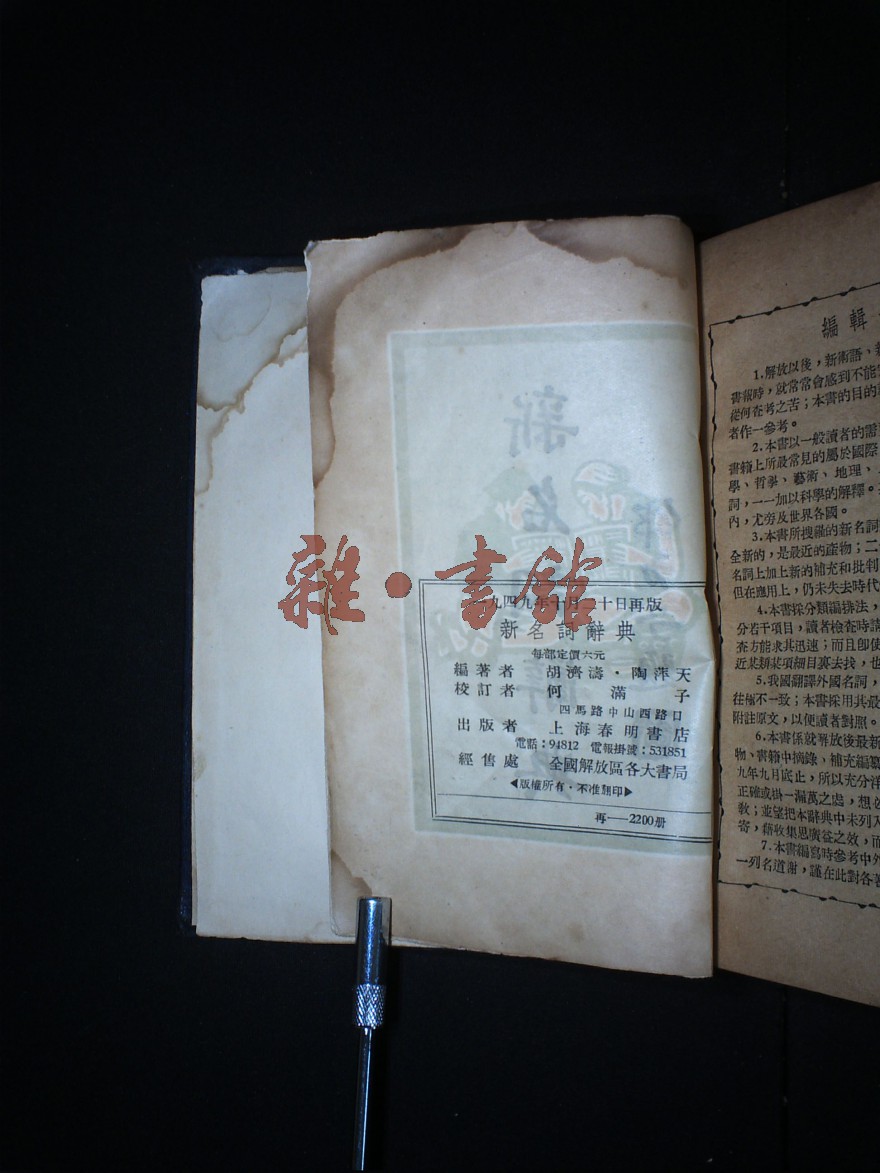 雜·書館
一九四九年十月二十日再版
新名詞辭典
每部定價六元
編著者 胡濟濤·陶萍天
校訂者 何滿子
四馬路中山西路口
出版者 上海春明書店
電話:94812 電報掛號:531851
經售處 全國解放區各大書局
◀版權所有·不准翻印▶
再——2200册
編輯
1.解放以後,新術語、
書報時,就常常會感到不能
從何查考之苦;本書的目的
者作一參考。
2.本書以一般讀者的需
書籍上所最常見的屬於國際
學、哲學、藝術、地理、
詞,一一加以科學的解釋。
內,尤旁及世界各國。
3.本書所搜羅的新名詞
全新的,是最近的產物;二
名詞上加上新的補充和批判
但在應用上,仍未失去時代
4.本書採分類編排法,
分若干項目,讀者檢查時請
查方能求其迅速;而且即使
近某類某項細目裏去找,也
5.我國翻譯外國名詞,
往極不一致;本書採用其最
附註原文,以便讀者對照。
6.本書係就解放後最新
物、書籍中摘錄、補充編纂
九年九月底止,所以充分洋
正確或掛一漏萬之處,想必
教;並望把本辭典中未列入
寄,藉收集思廣益之效,而
7.本書編寫時參考中外
一列名道謝,謹在此對各著